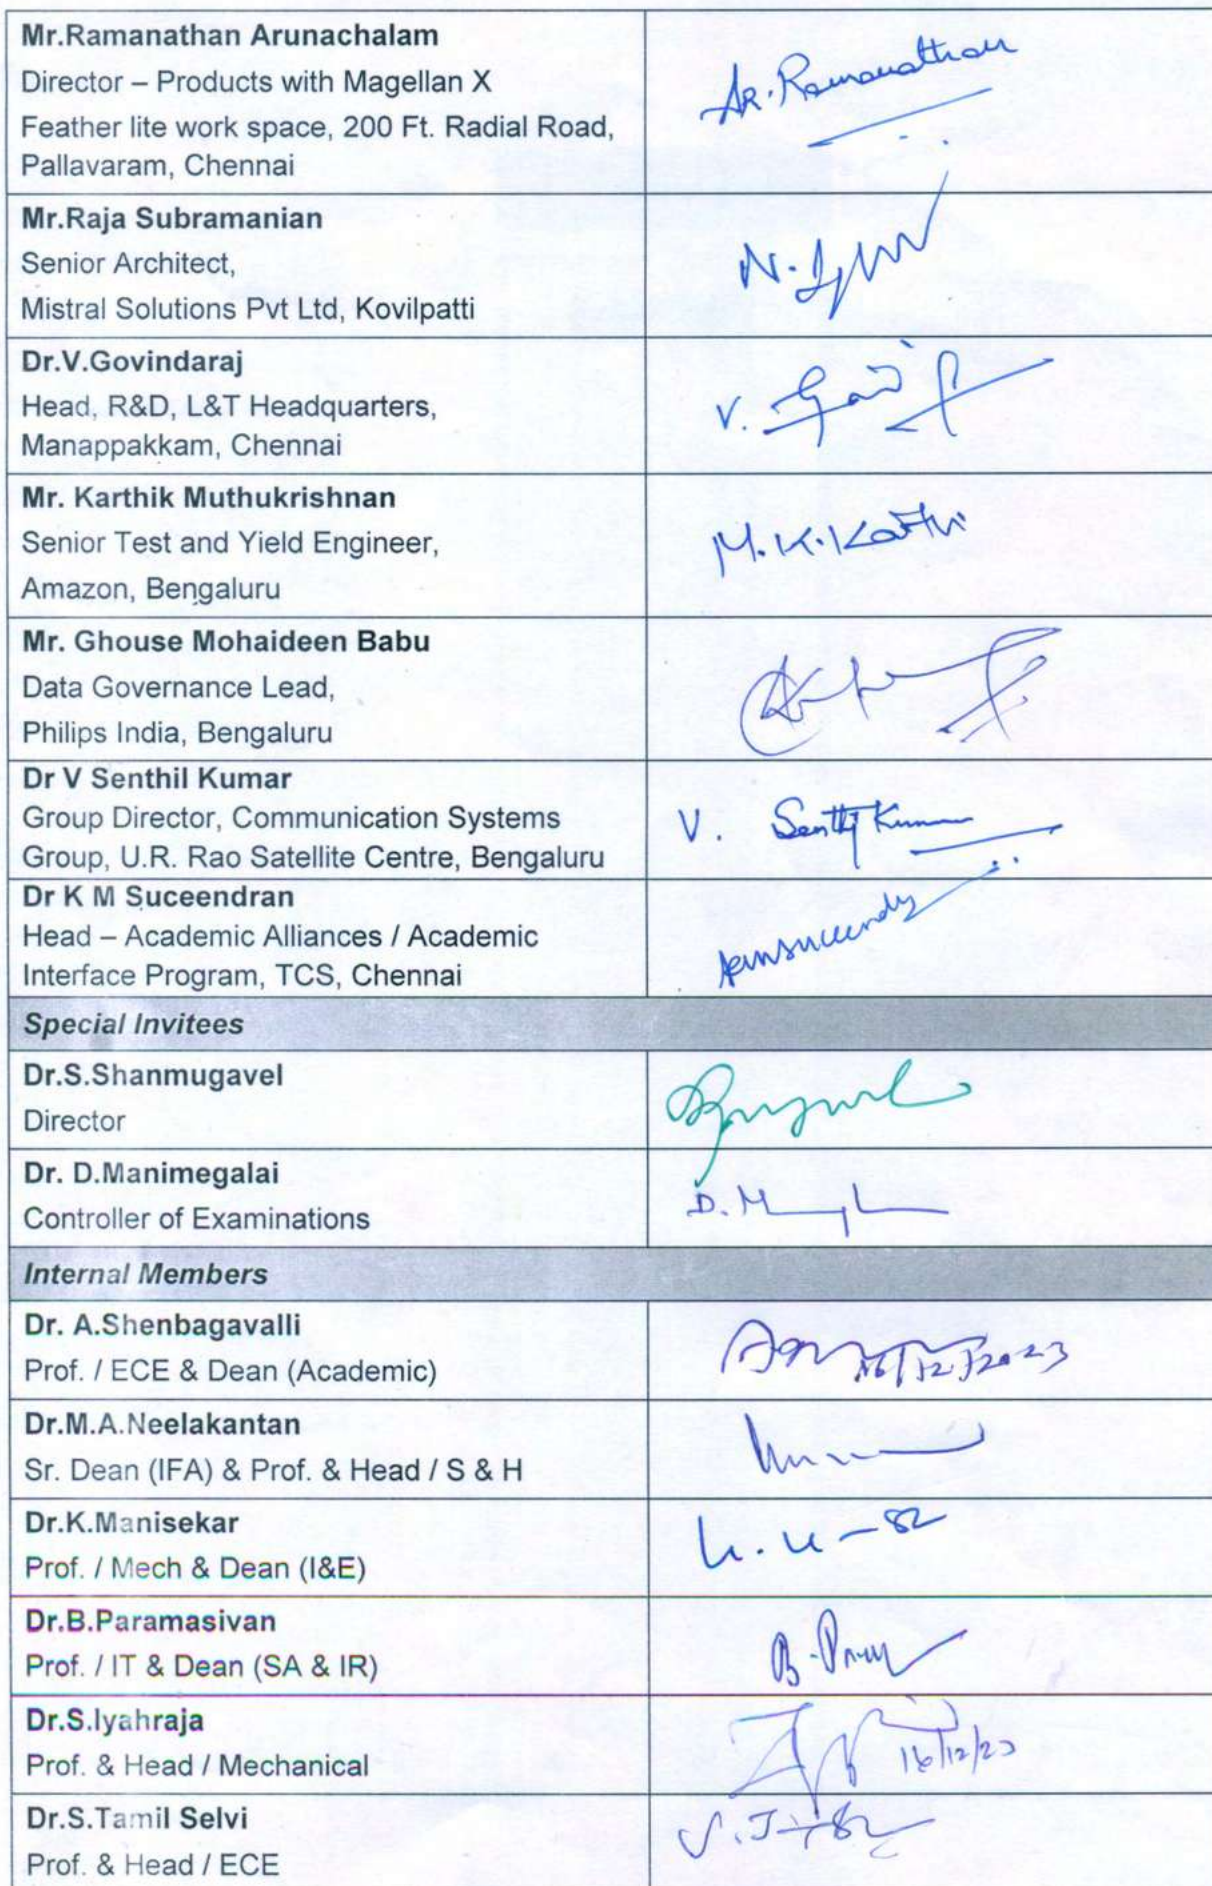 Mr.Ramanathan Arunachalam
Director – Products with Magellan X
Feather lite work space, 200 Ft. Radial Road,
Pallavaram, Chennai
AR.Ramanathan
Mr.Raja Subramanian
Senior Architect,
Mistral Solutions Pvt Ltd, Kovilpatti
N.
Dr.V.Govindaraj
Head, R&D, L&T Headquarters,
Manappakkam, Chennai
V.
Mr. Karthik Muthukrishnan
Senior Test and Yield Engineer,
Amazon, Bengaluru
M.K.Karthi
Mr. Ghouse Mohaideen Babu
Data Governance Lead,
Philips India, Bengaluru
Dr V Senthil Kumar
Group Director, Communication Systems
Group, U.R. Rao Satellite Centre, Bengaluru
V. Senthil Kumar
Dr K M Suceendran
Head – Academic Alliances / Academic
Interface Program, TCS, Chennai
Special Invitees
Dr.S.Shanmugavel
Director
Dr. D.Manimegalai
Controller of Examinations
D.M
Internal Members
Dr. A.Shenbagavalli
Prof. / ECE & Dean (Academic)
16/12/2023
Dr.M.A.Neelakantan
Sr. Dean (IFA) & Prof. & Head / S & H
Dr.K.Manisekar
Prof. / Mech & Dean (I&E)
Dr.B.Paramasivan
Prof. / IT & Dean (SA & IR)
Dr.S.Iyahraja
Prof. & Head / Mechanical
16/12/23
Dr.S.Tamil Selvi
Prof. & Head / ECE